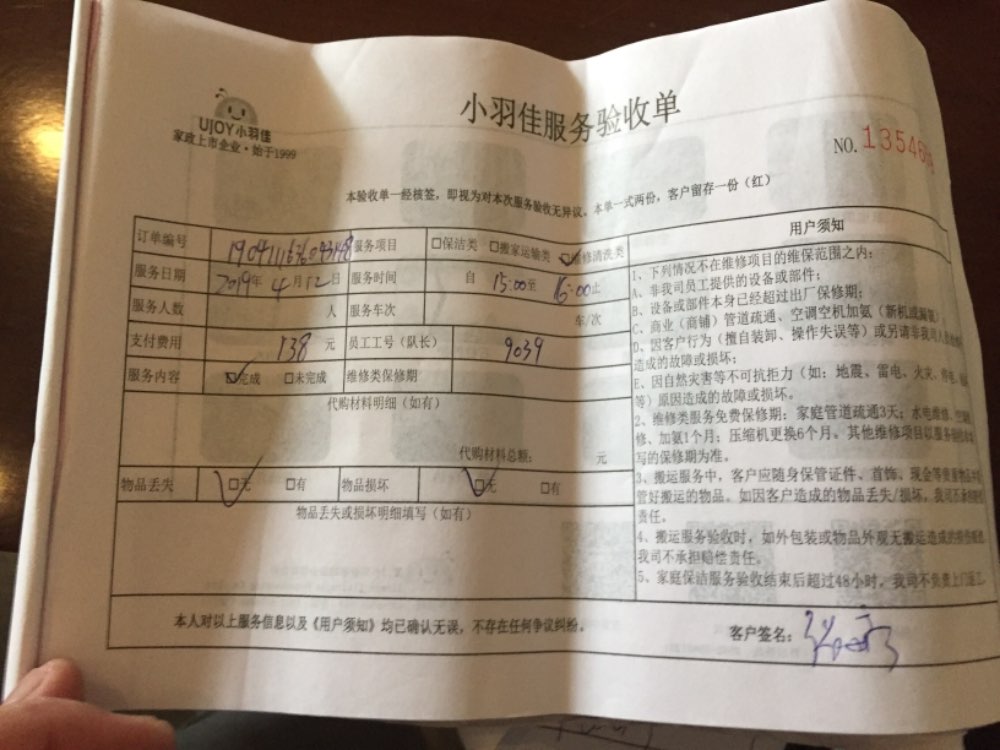 UJOY小羽佳
家政上市企业·始于1999
小羽佳服务验收单
NO.13546
本验收单一经核签，即视为对本次服务验收无异议。本单一式两份，客户留存一份（红）
订单编号 服务项目 □保洁类 □搬家运输类 □维修清洗类
服务日期 2019年4月12日 服务时间 自 15:00至 16:00止
服务人数 人 服务车次 车/次
支付费用 138 元 员工工号（队长） 9039
服务内容 □完成 □未完成 维修类保修期
代购材料明细（如有）
代购材料总额： 元
物品丢失 □无 □有 物品损坏 □无 □有
物品丢失或损坏明细填写（如有）
用户须知
1、下列情况不在维修项目的维保范围之内：
A、非我司员工提供的设备或部件；
B、设备或部件本身已经超过出厂保修期；
C、商业（商铺）管道疏通、空调空机加氨（新机或漏氨）
D、因客户行为（擅自装卸、操作失误等）或另请非我司人员
造成的故障或损坏；
E、因自然灾害等不可抗拒力（如：地震、雷电、火灾、停电、
等）原因造成的故障或损坏。
2、维修类服务免费保修期：家庭管道疏通3天；水电维修、
修、加氨1个月；压缩机更换6个月。其他维修项目以服务
写的保修期为准。
3、搬运服务中，客户应随身保管证件、首饰、现金等贵重物品并
管好搬运的物品。如因客户造成的物品丢失/损坏，我司不承担赔偿
责任。
4、搬运服务验收时，如外包装或物品外观无搬运造成的损伤痕迹
我司不承担赔偿责任。
5、家庭保洁服务验收结束后超过48小时，我司不负责上门返工
本人对以上服务信息以及《用户须知》均已确认无误，不存在任何争议纠纷。
客户签名：